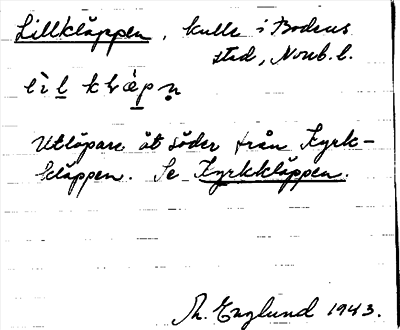 Lillkläppen, kulle i Bodens
stad, Norrb. l.
Utlöpare åt söder från Kyrk-
kläppen. Se Kyrkkläppen.
Th. Englund 1943.